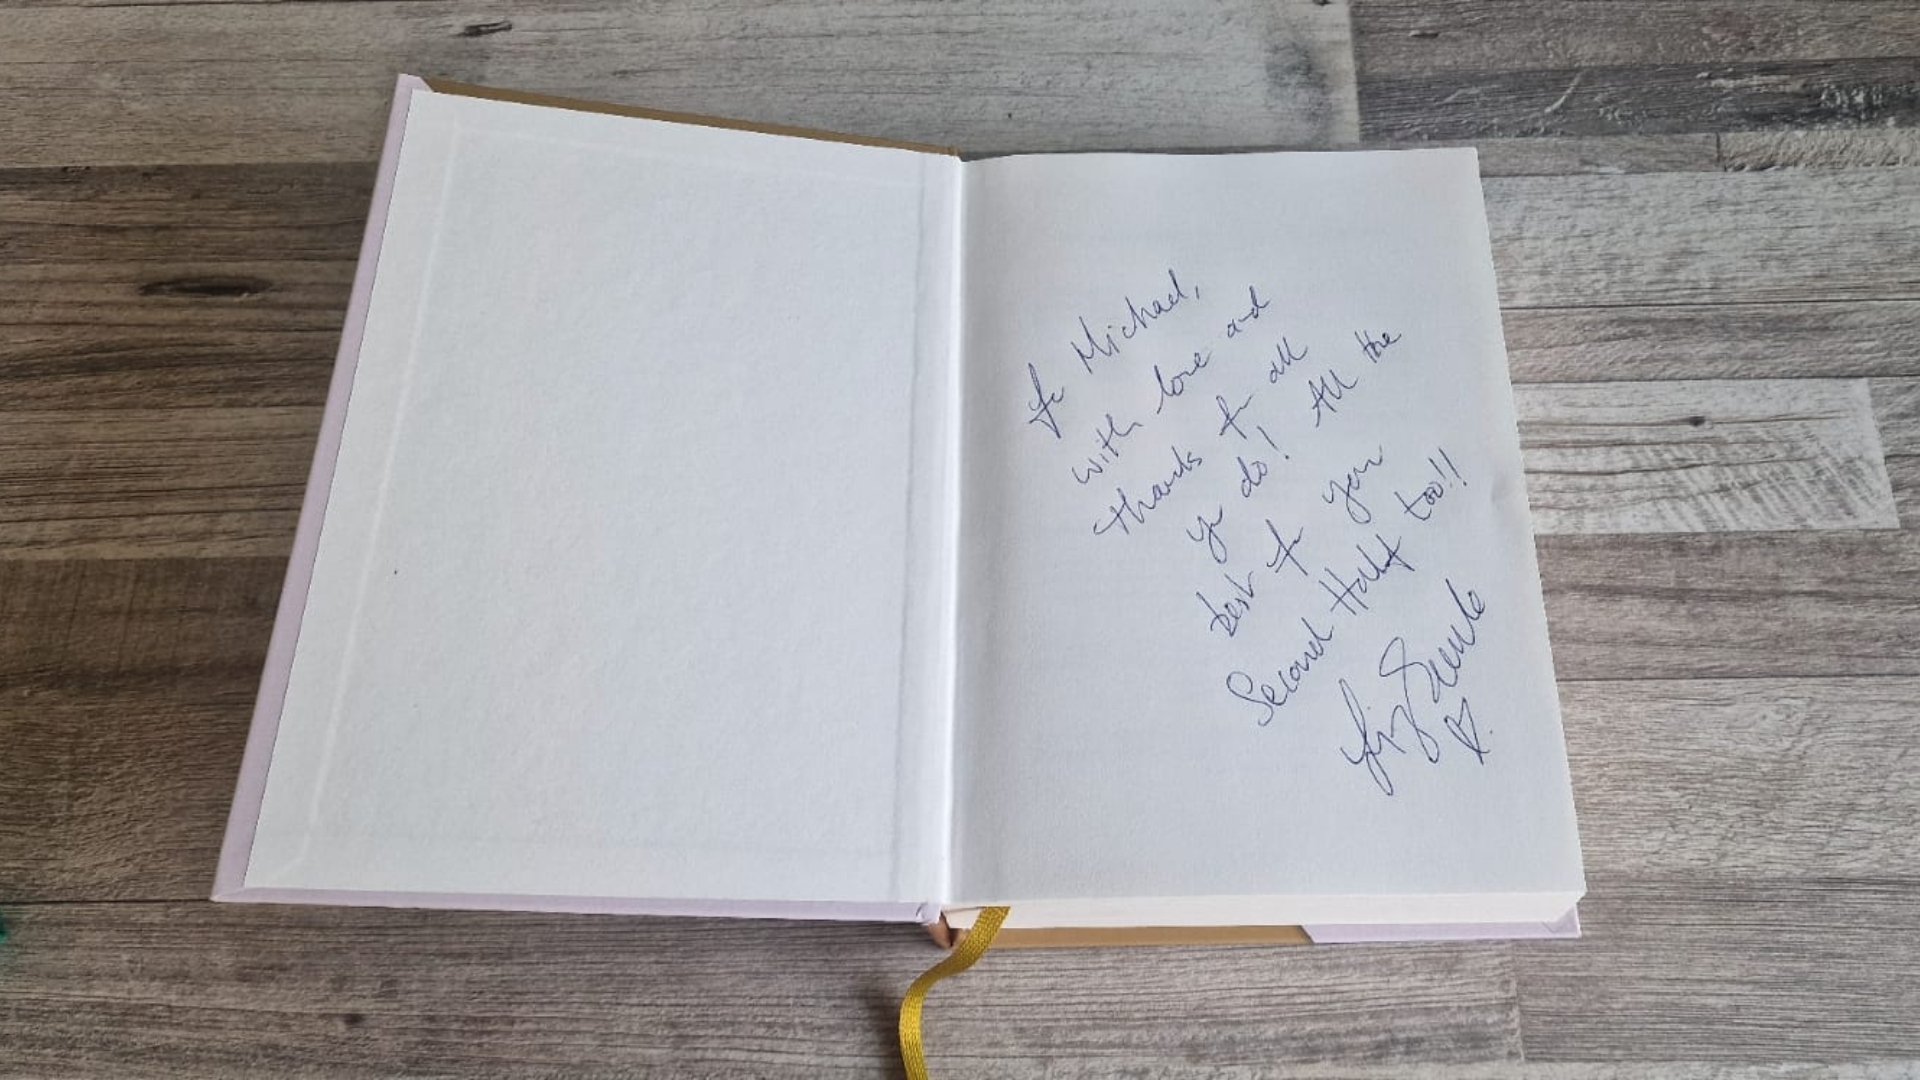 for Michael,
with love and
thanks for all
you do! All the
best for your
Second Half too!!